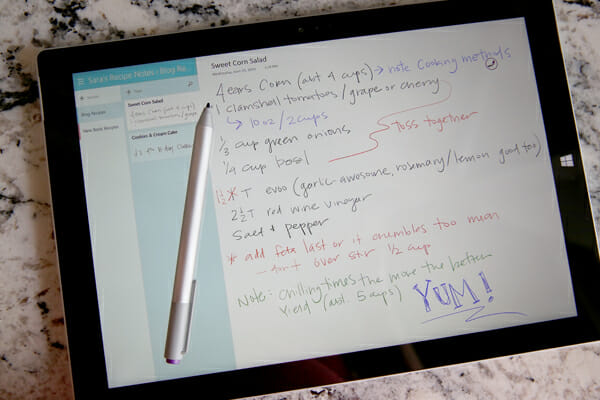 Sara's Recipe Notes › Blog Re...
Sweet Corn Salad
Blog Recipes
Sweet Corn Salad
Cookies & Cream Cake
Sweet Corn Salad
4 ears Corn (abt 4 cups) → note cooking methods
1 clamshell tomatoes/grape or cherry
↳ 10 oz/2 cups
1/3 cup green onions
toss together
1/4 cup basil
1 1/2 * T evoo (garlic awesome, rosemary/lemon good too)
2 1/2 T red wine vinegar
Salt + pepper
* add feta last or it crumbles too much
- don't over stir 1/2 cup
Note: Chilling times the more the better
Yield (abt. 5 cups)
YUM!